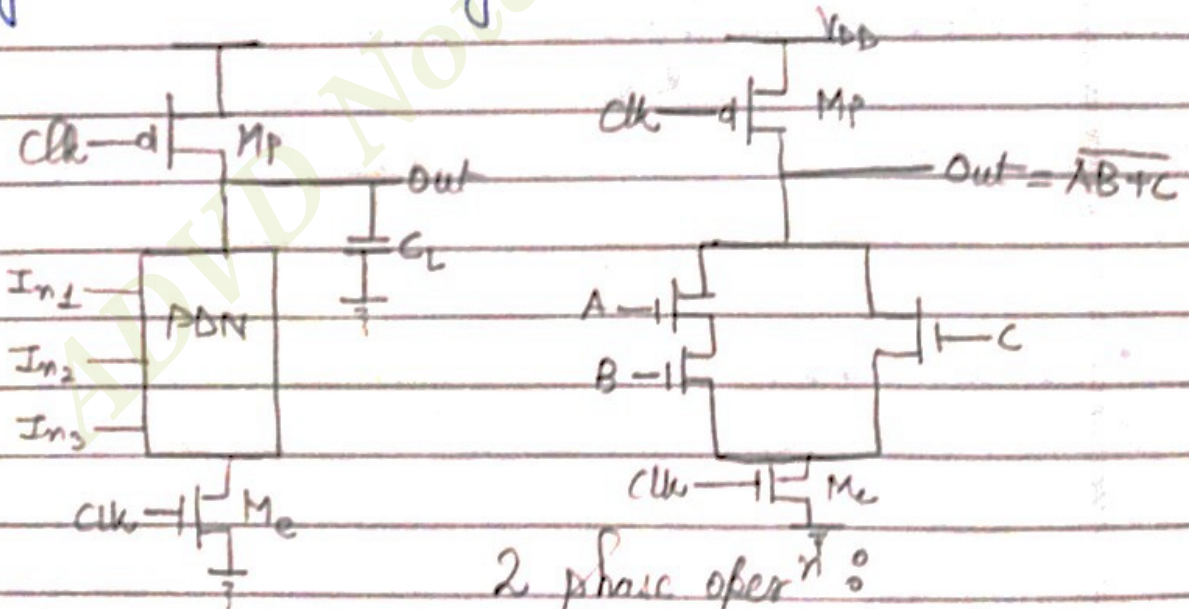 VDD
Clk
Mp
Out
CL
In1
In2
In3
PDN
Clk
Me
Clk
Mp
Out = \overline{AB+C}
A
B
C
Clk
Me
2 phase operⁿ :